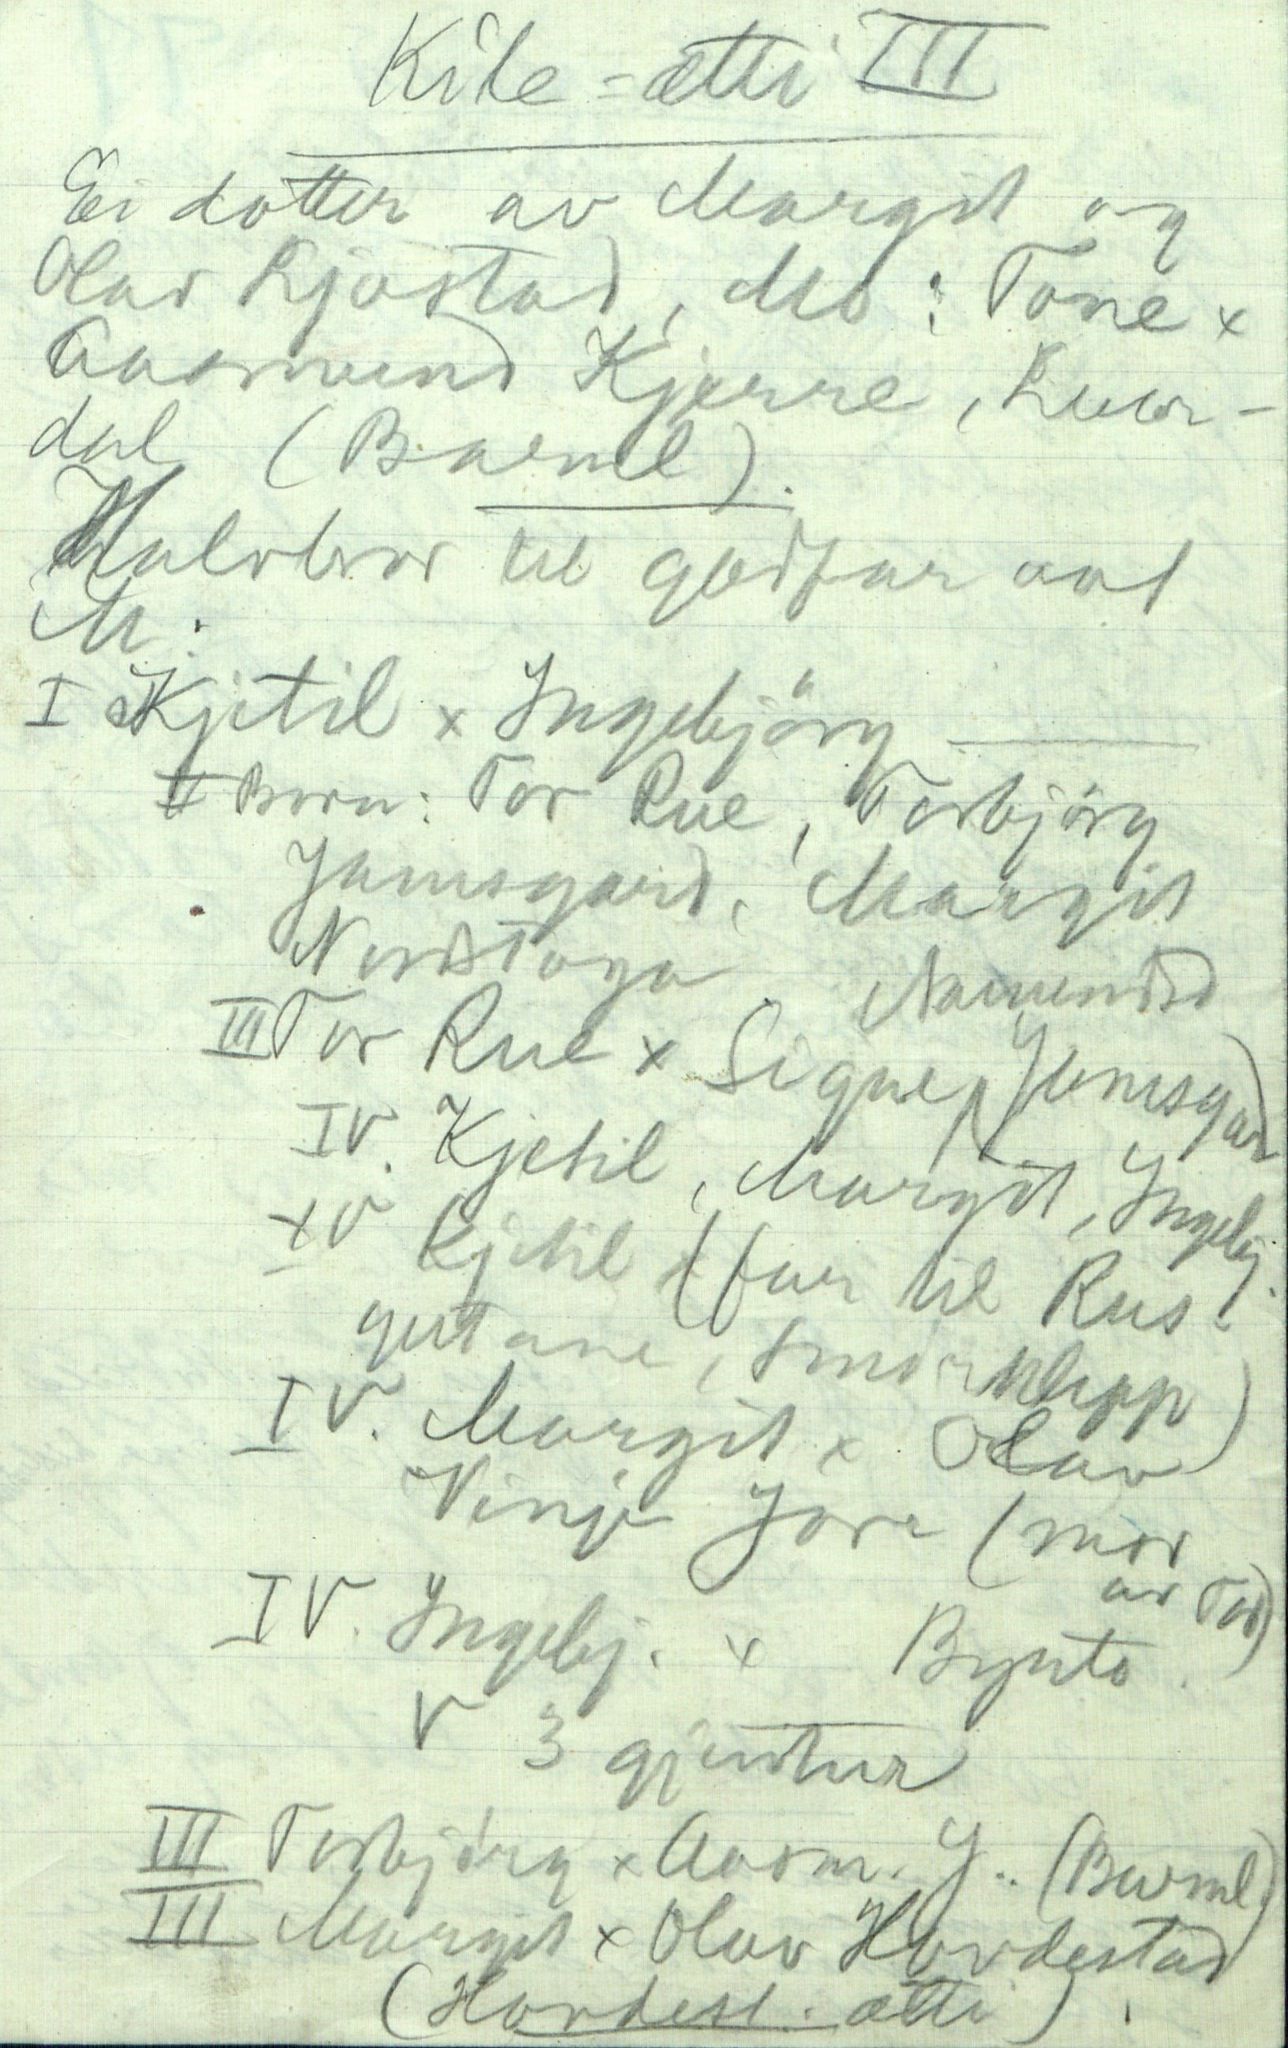 Kile-ætti III
Ei dotter av Margit og
Olav Ljostad, Mo: Tone x
Aasmund Kjerre, Laur-
dal (Barnl).
Halvbror til godfar aat
M:
I Kjetil x Ingebjörg
II Born: Tor Rue, Torbjörg
Jamsgard, Margit
Nordstoga
III Tor Rue x Signe Aamundsd (Jamsgard)
IV. Kjetil, Margit, Ingebj.
IV Kjetil (far til Rus-
gutane, Smørklepp)
IV. Margit x Olav
Vinje Jore (mor
av Tor)
IV. Ingebj. x Bynto.
V 3 gjentur
III Torbjörg x Aasm. J.. (Barnl)
III Margit x Olav Hovdestad
(Hovdest. ætti).